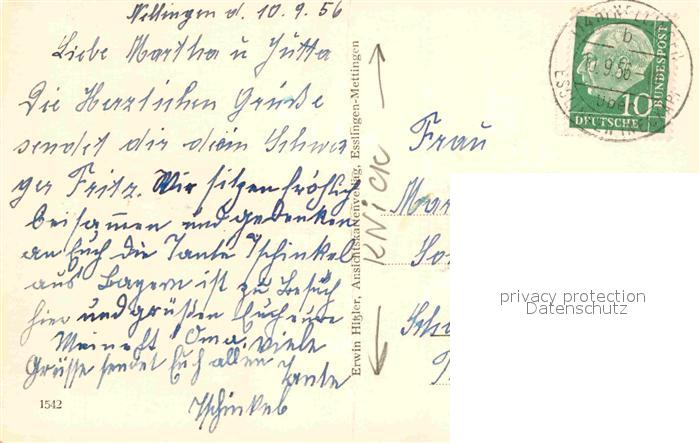 Nellingen d. 10.9.56
Liebe Martha u Jutta
Die Herzlichen Grüße
sendet dir dein Schwa
ger Fritz. Wir sitzen fröhlich
beisammen und gedenken
an Euch die Tante Tschinkel
aus Bayern ist zu Besuch
hier und grüßen Euch eure
Oma, viele
Grüsse sendet Euch allen
Tante
Tschinkel
1542
Erwin Higler, Ansichtskartenverlag, Esslingen-Mettingen
KNICK
Frau
Mar
So
Schw
10.9.56
10
DEUTSCHE
BUNDESPOST
privacy protection
Datenschutz